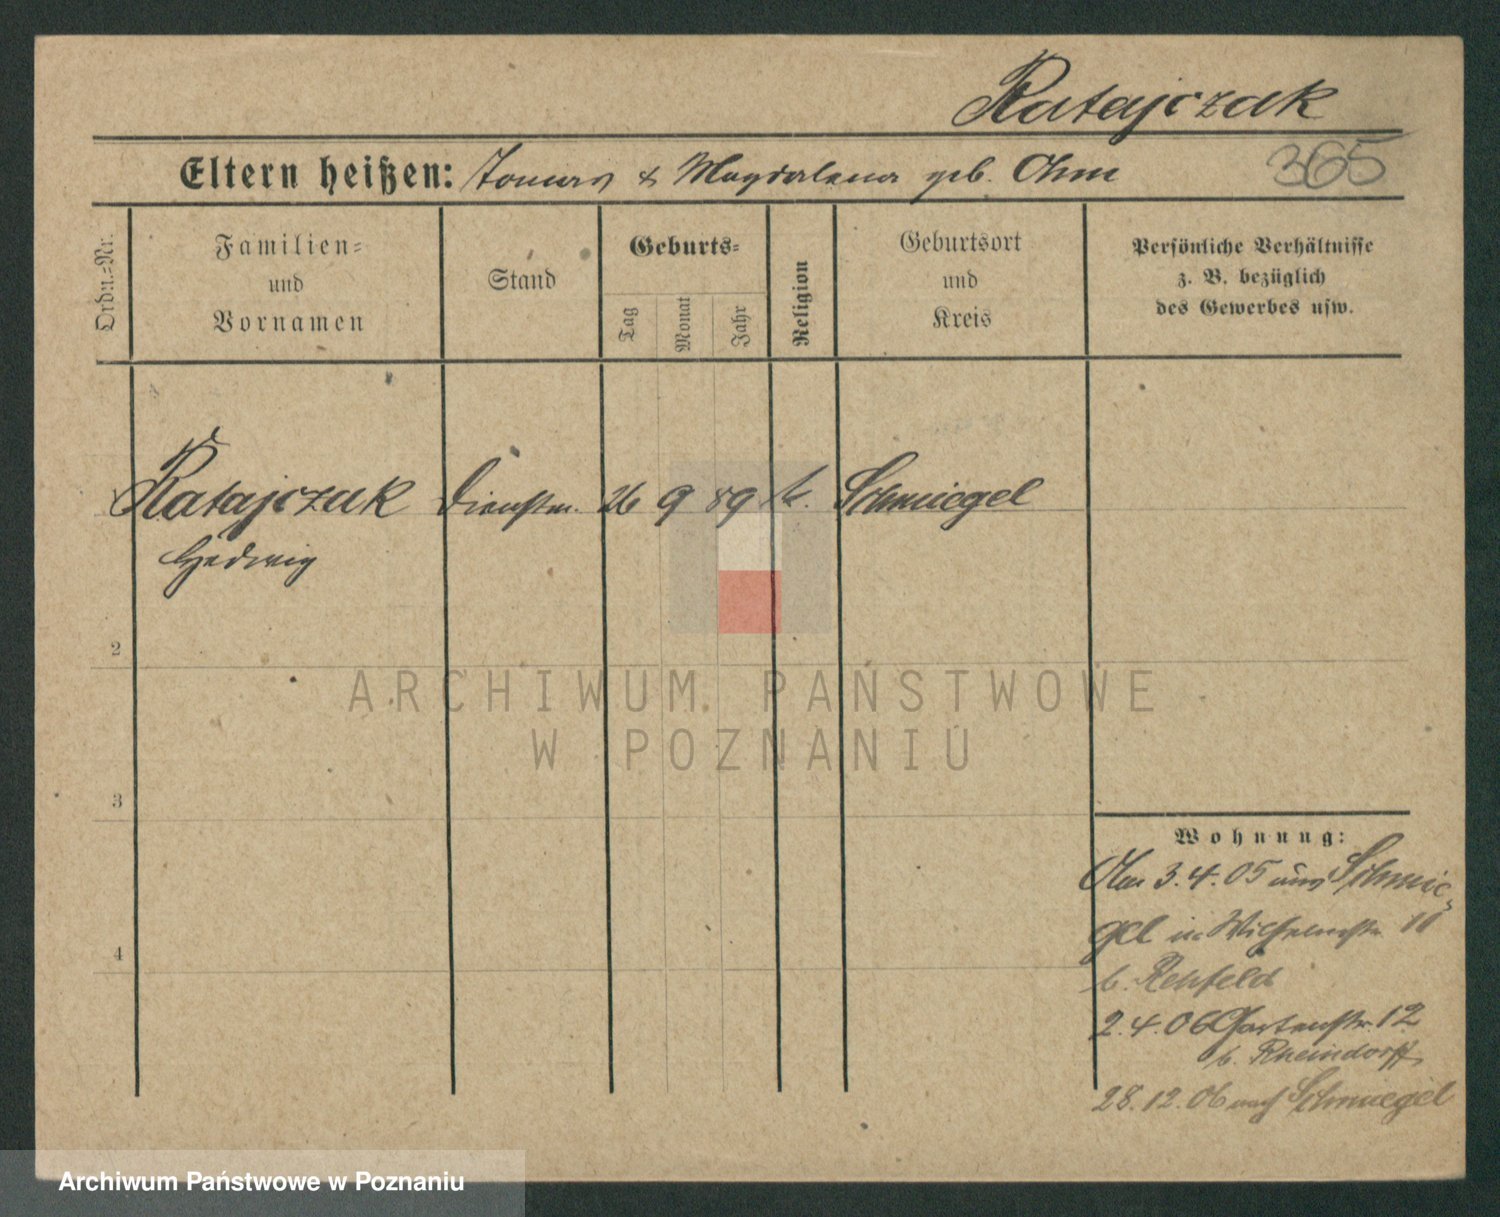 Ratajczak
Eltern heißen: Tomas & Magdalena geb. Ohm
365
Ordn.=Nr.
Familien=
und
Vornamen
Stand
Geburts=
Tag
Monat
Jahr
Religion
Geburtsort
und
Kreis
Persönliche Verhältnisse
z. B. bezüglich
des Gewerbes usw.
Ratajczak Dienstm. 26 9 89 k. Schmiegel
Hedwig
2
3
4
Wohnung:
Am 3.4.05 aus Schmie-
gel in Wilhelmstr. 11
b. Rehfeld
2.4.06 Gartenstr. 12
b. Rheindorff
28.12.06 nach Schmiegel
ARCHIWUM PAŃSTWOWE
W POZNANIU
Archiwum Państwowe w Poznaniu